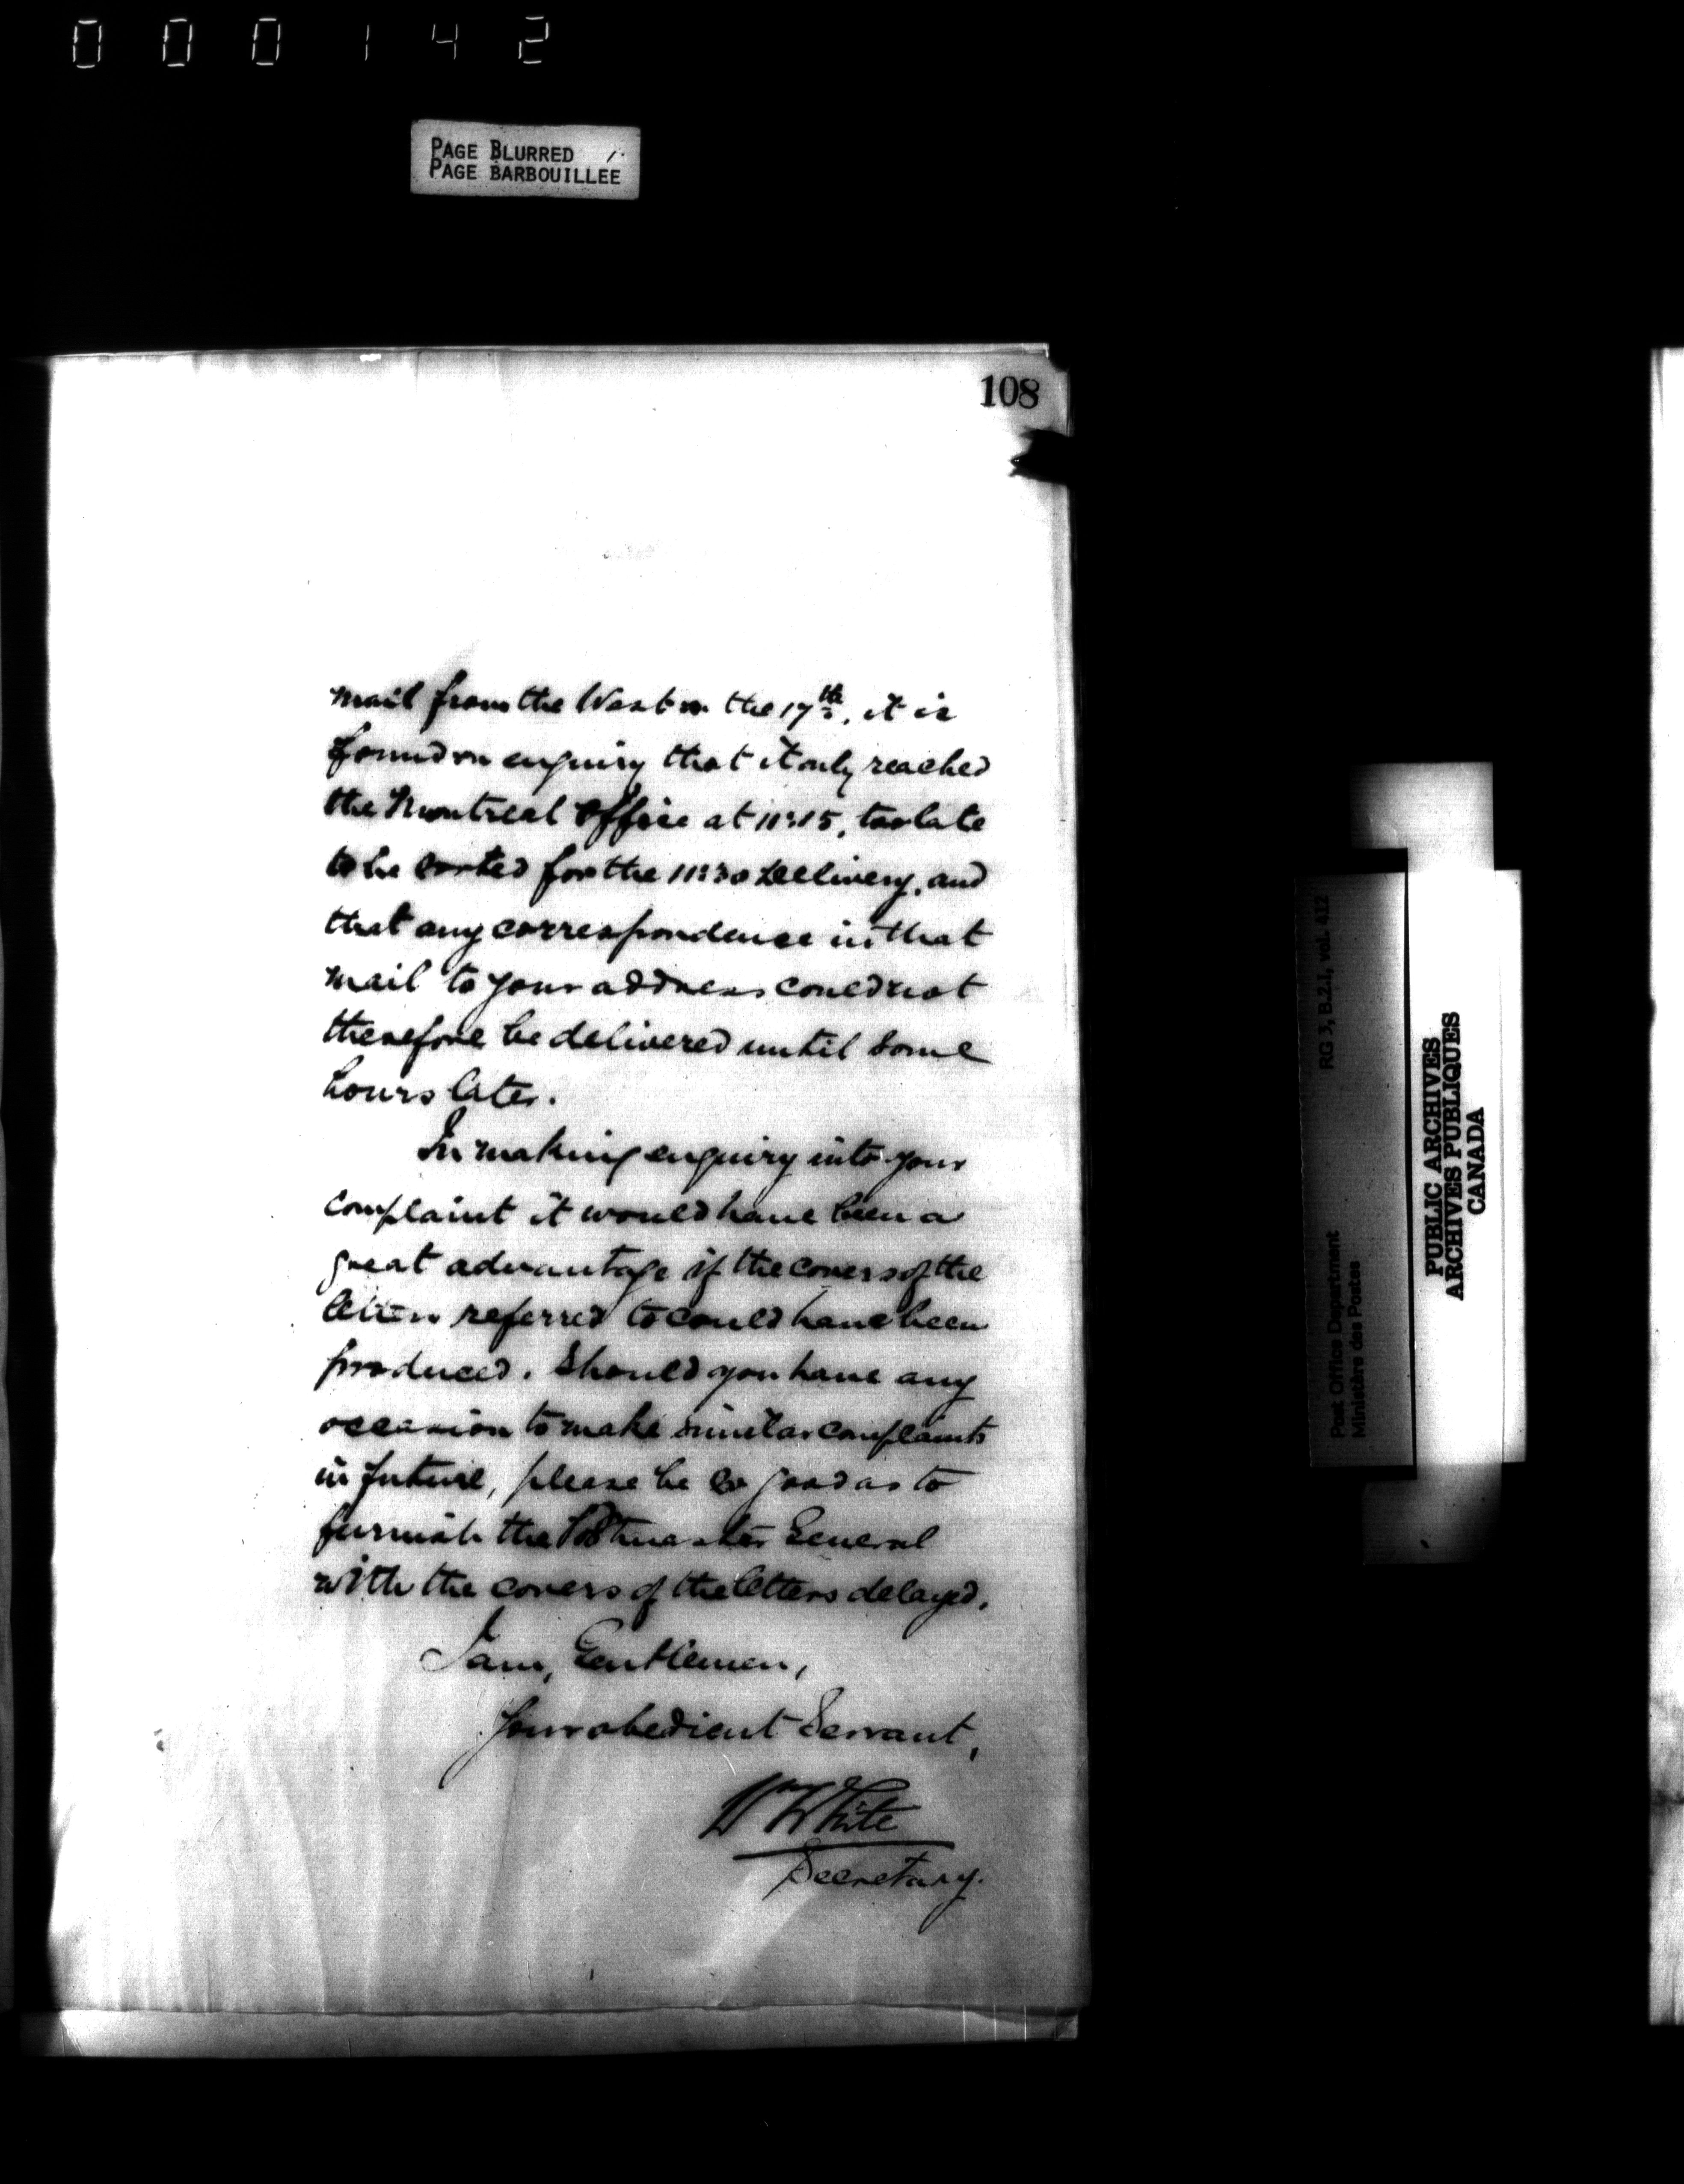 000142
PAGE BLURRED
PAGE BARBOUILLEE
108
mail from the West on the 17th, it is
found on enquiry that it only reached
the Montreal Office at 11:15, too late
to be sorted for the 11:30 delivery, and
that any correspondence in that
mail to your address could not
therefore be delivered until some
hours later.
In making enquiry into your
complaint it would have been a
great advantage if the covers of the
letters referred to could have been
produced. Should you have any
occasion to make similar complaints
in future, please be so good as to
furnish the Postmaster General
with the covers of the letters delayed.
I am, Gentlemen,
Your obedient Servant,
W White
Secretary.
RG 3, B.2.1, vol. 412
Post Office Department
Ministère des Postes
PUBLIC ARCHIVES
ARCHIVES PUBLIQUES
CANADA